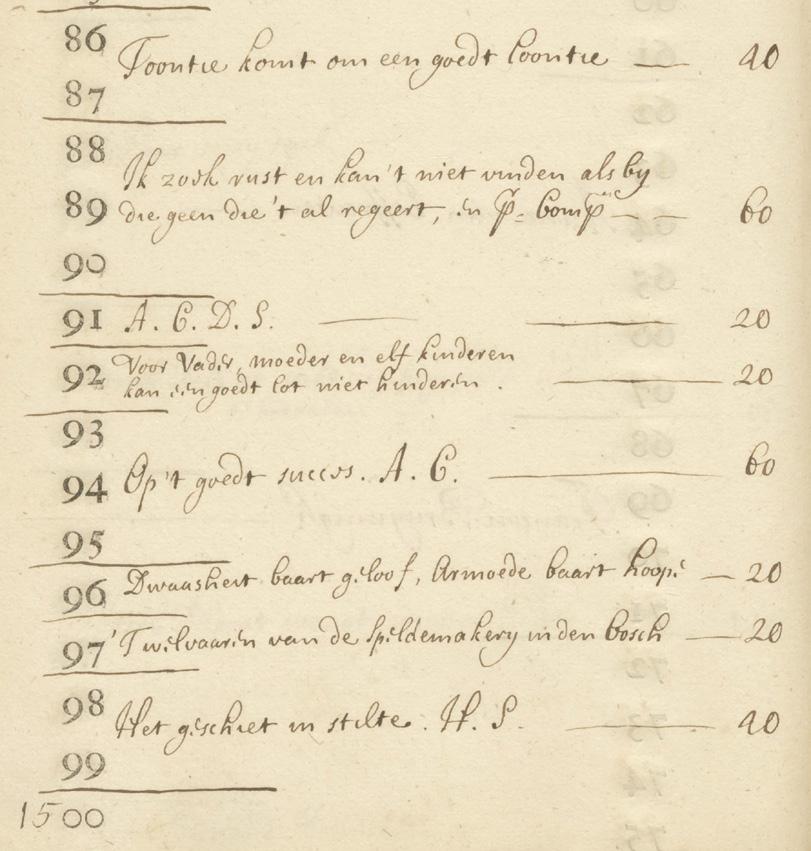 86
Toontie komt om een goedt loontie — 40
87
88
Ik zoek rust en kan't niet vinden als by
89 die geen die 't al regeert, en p: Comp — — 60
90
91 A. C. D. S. — — 20
Voor Vader, moeder en elf kinderen
92 kan een goedt lot niet hinderen. — 20
93
94 Op't goedt succes. A. C. — 60
95
96 Dwaasheit baart geloof, Armoede baart hoope — 20
97 'T welvaaren van de Speldemakery in den bosch — 20
98
Het geschiet in stilte. H. S. — 40
99
1500